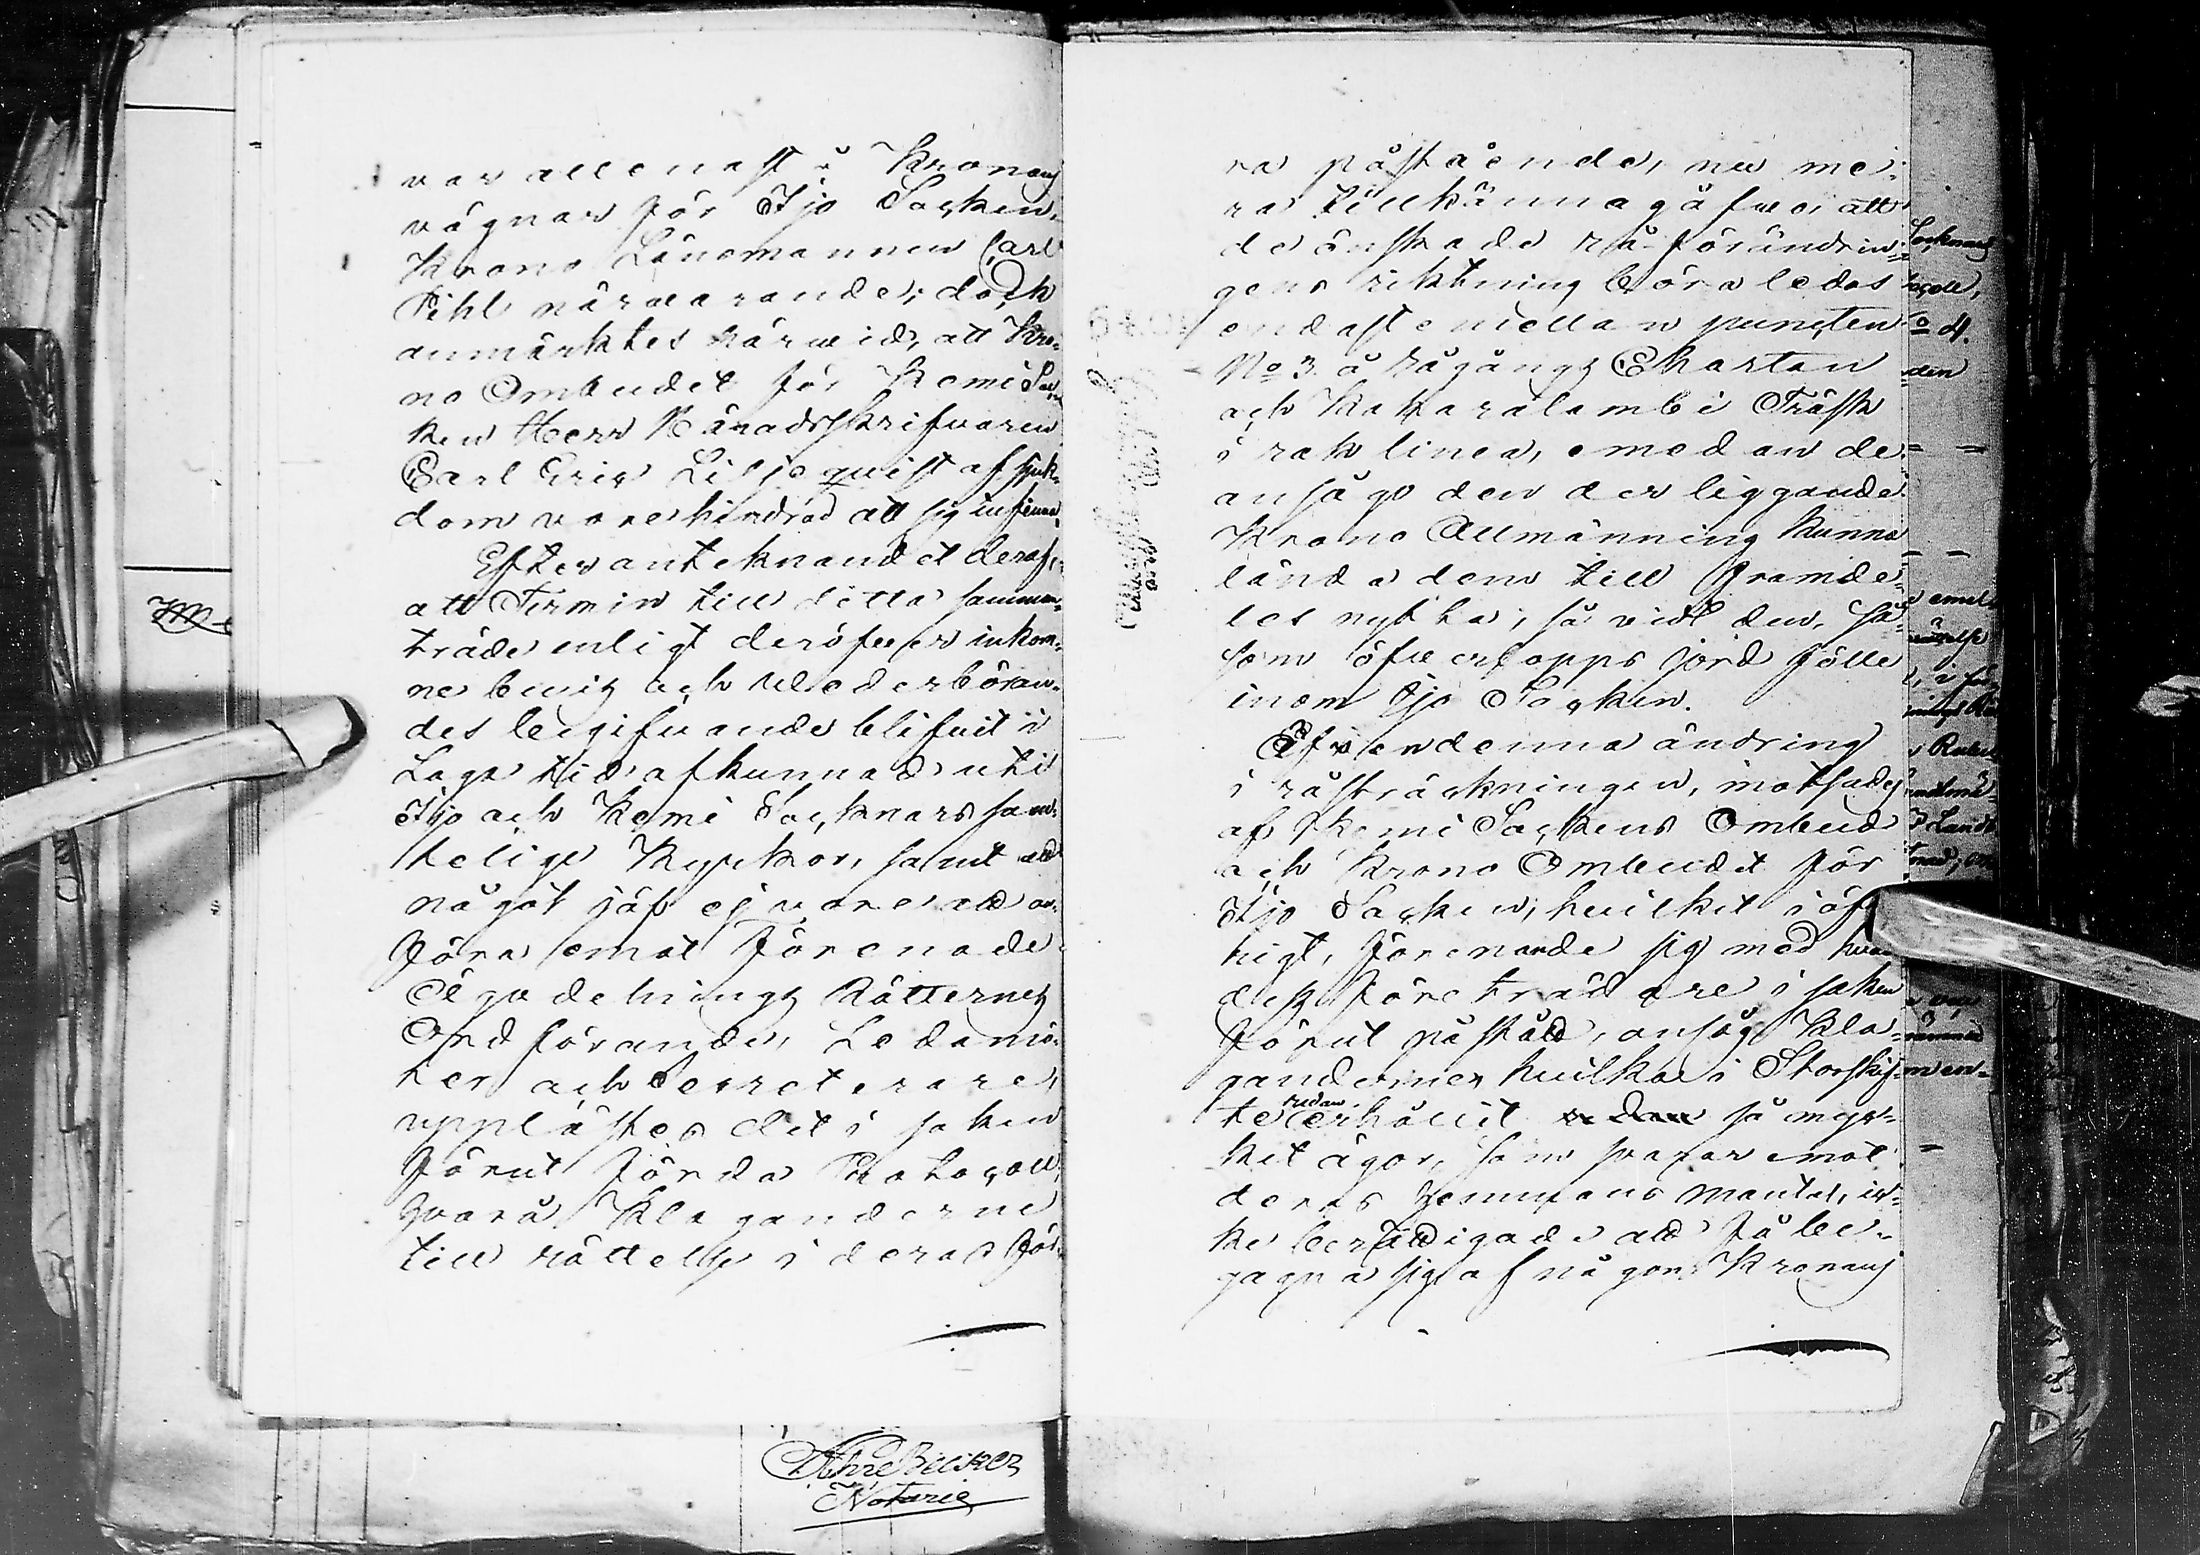 var allenast å Kronans
vägnar för Ijo Socken,
Krono Länsmannen Carl
Pihl närvarande; dock
anmärktes härwid, att Kro-
no Ombudet för Kemi Soc-
ken Herr Häradsskrifvaren
Carl Eric Liljequist af sjuk-
dom vore hindrad att sig infinna.
Efter anteknandet deraf,
att Termin till detta samman-
träde enligt deröfver inkom-
ne bevis och wederböran-
des begifvande blifvit i
Laga tid afkunnad uti
Ijo och Kemi Socknars sam-
telige Kyrkor, samt att
något jäf ej vore att an-
föra emot Förenade
Ägodelnings Rätternes
Ordförande, Ledamö-
ter och Secreterare,
upplästes det i saken
förut förda Protocoll,
hvarå Klaganderne
till rättelse i deras för-
ra påstående, nu me-
ra tillkännagåfvo, att
de önskade rå-förändrin-
gens riktning böra ledas
endast emellan puncten
No 3. å rågångs Chartan
och Kokaralambi Träsk
i rak linea, emedan de
ansågo den der liggande
Krono Allmänning kunna
lända dem till framde-
les nytta, så vidt den, så-
som öfverlopps jord fölle
inom Ijo Socken.
Äfven denna ändring
i råsträckningen, motsades
af Kemi Sockens Ombud
och Krono Ombudet för
Ijo Socken, hvilket i öf
rigt, förenande sig med hvad
dess företrädare i saken
förut påstådt, ansåg Kla-
ganderne, hvilka i Storskif-
redan
te erhållit så myc-
ket ägor, som svarar emot
deras hemmans mantal, ic-
ke berättigade att få be-
gagna sig af någon Kronans
Notarie